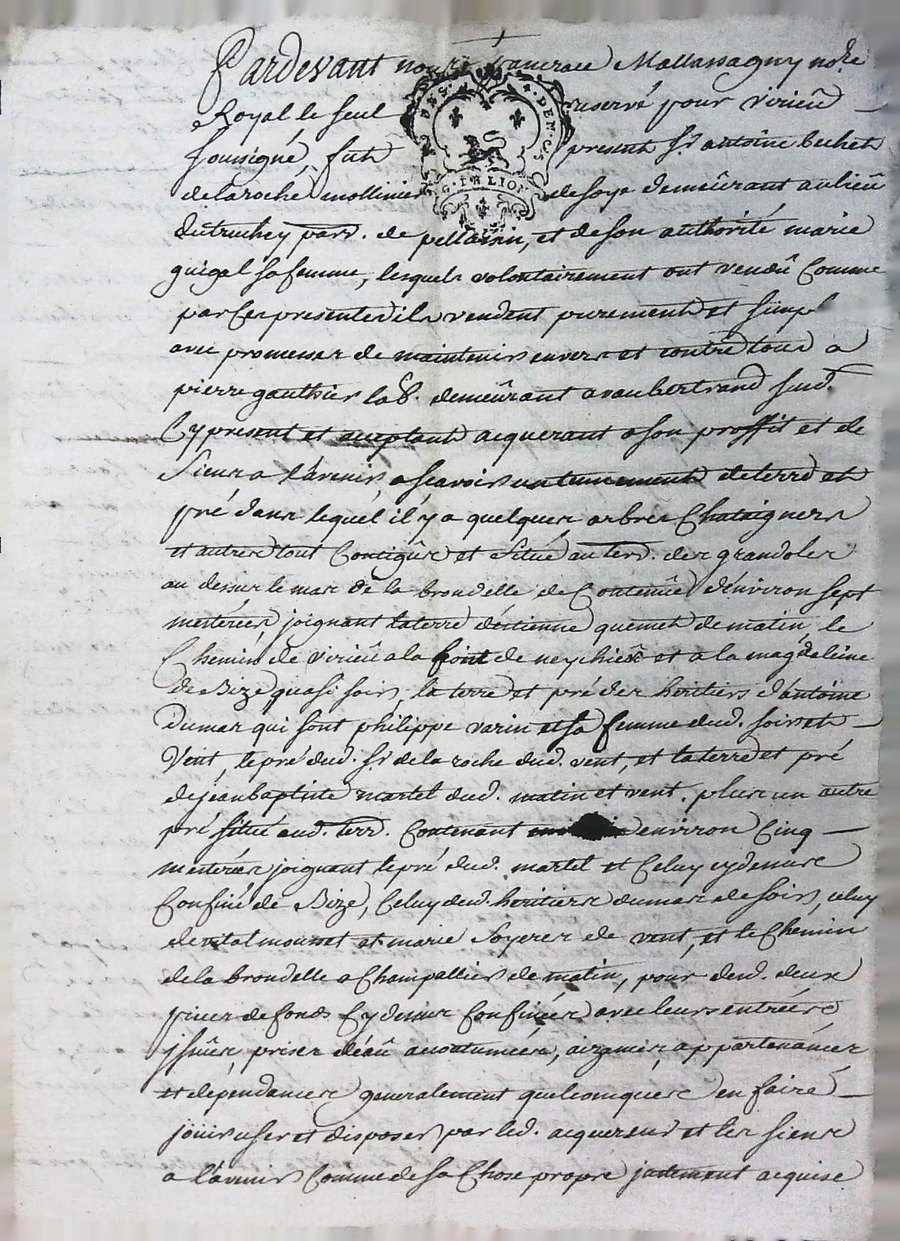 Pardevant nous Mallassagny no.re
Royal le seul reservé pour virieû
soussigné, fut present Sr. antoine bechet
de la roche mollinier de soye demeûrant au lieu
du truchey parr. de pellussin, et de son authorité marie
guigal sa femme, lesquels volontairement ont vendû comme
par ces presentes ils vendent purement et simpl
avec promesse de maintenir envers et contre tous a
pierre gauthier lab. demeûrant a vaubertrand sud.
Cy present et acceptant acquerant a son proffit et de
sieurs a l'avenir, a scavoir un tenement de terre et
pré dans lequel il y a quelques arbres Chataigners
et autres tout Contigûs et situé au terr. des grandoles
au dessus le mas de la brondelle de Contenüe d'environ sept
mesterées joignant la terre d'estienne quemet de matin, le
Chemin de virieû a la font de neychiere et a la magdeleine
de Bize quasi soir, la terre et pré des heritiers d'antoine
Dumas qui sont philippe varin et sa femme dud. soir et
Vent, le pré dud. Sr. de la roche dud. vent, et la terre et pré
de jean baptiste martel dud. matin et vent. plus un autre
pré situé aud. terr. Contenant environ Cinq
mesterées joignant le pré dud. martel et Celuy cy dessus
Confiné de Bize, Celuy desd. heritiers dumas de soir, celuy
de vital mousset et marie soyeres de vent, et le Chemin
de la brondelle a Champallier de matin, pour desd. deux
pieces de fonds Cy dessus Confinées avec leurs entrées
jssües, prises d'eaû accoutumées, aizances, appartenances
et dependances generalement quelconques en faire
jouir user et disposer par led. acquereur et les siens
a l'avenir Comme de sa Chose propre justement acquise
G. D. LION